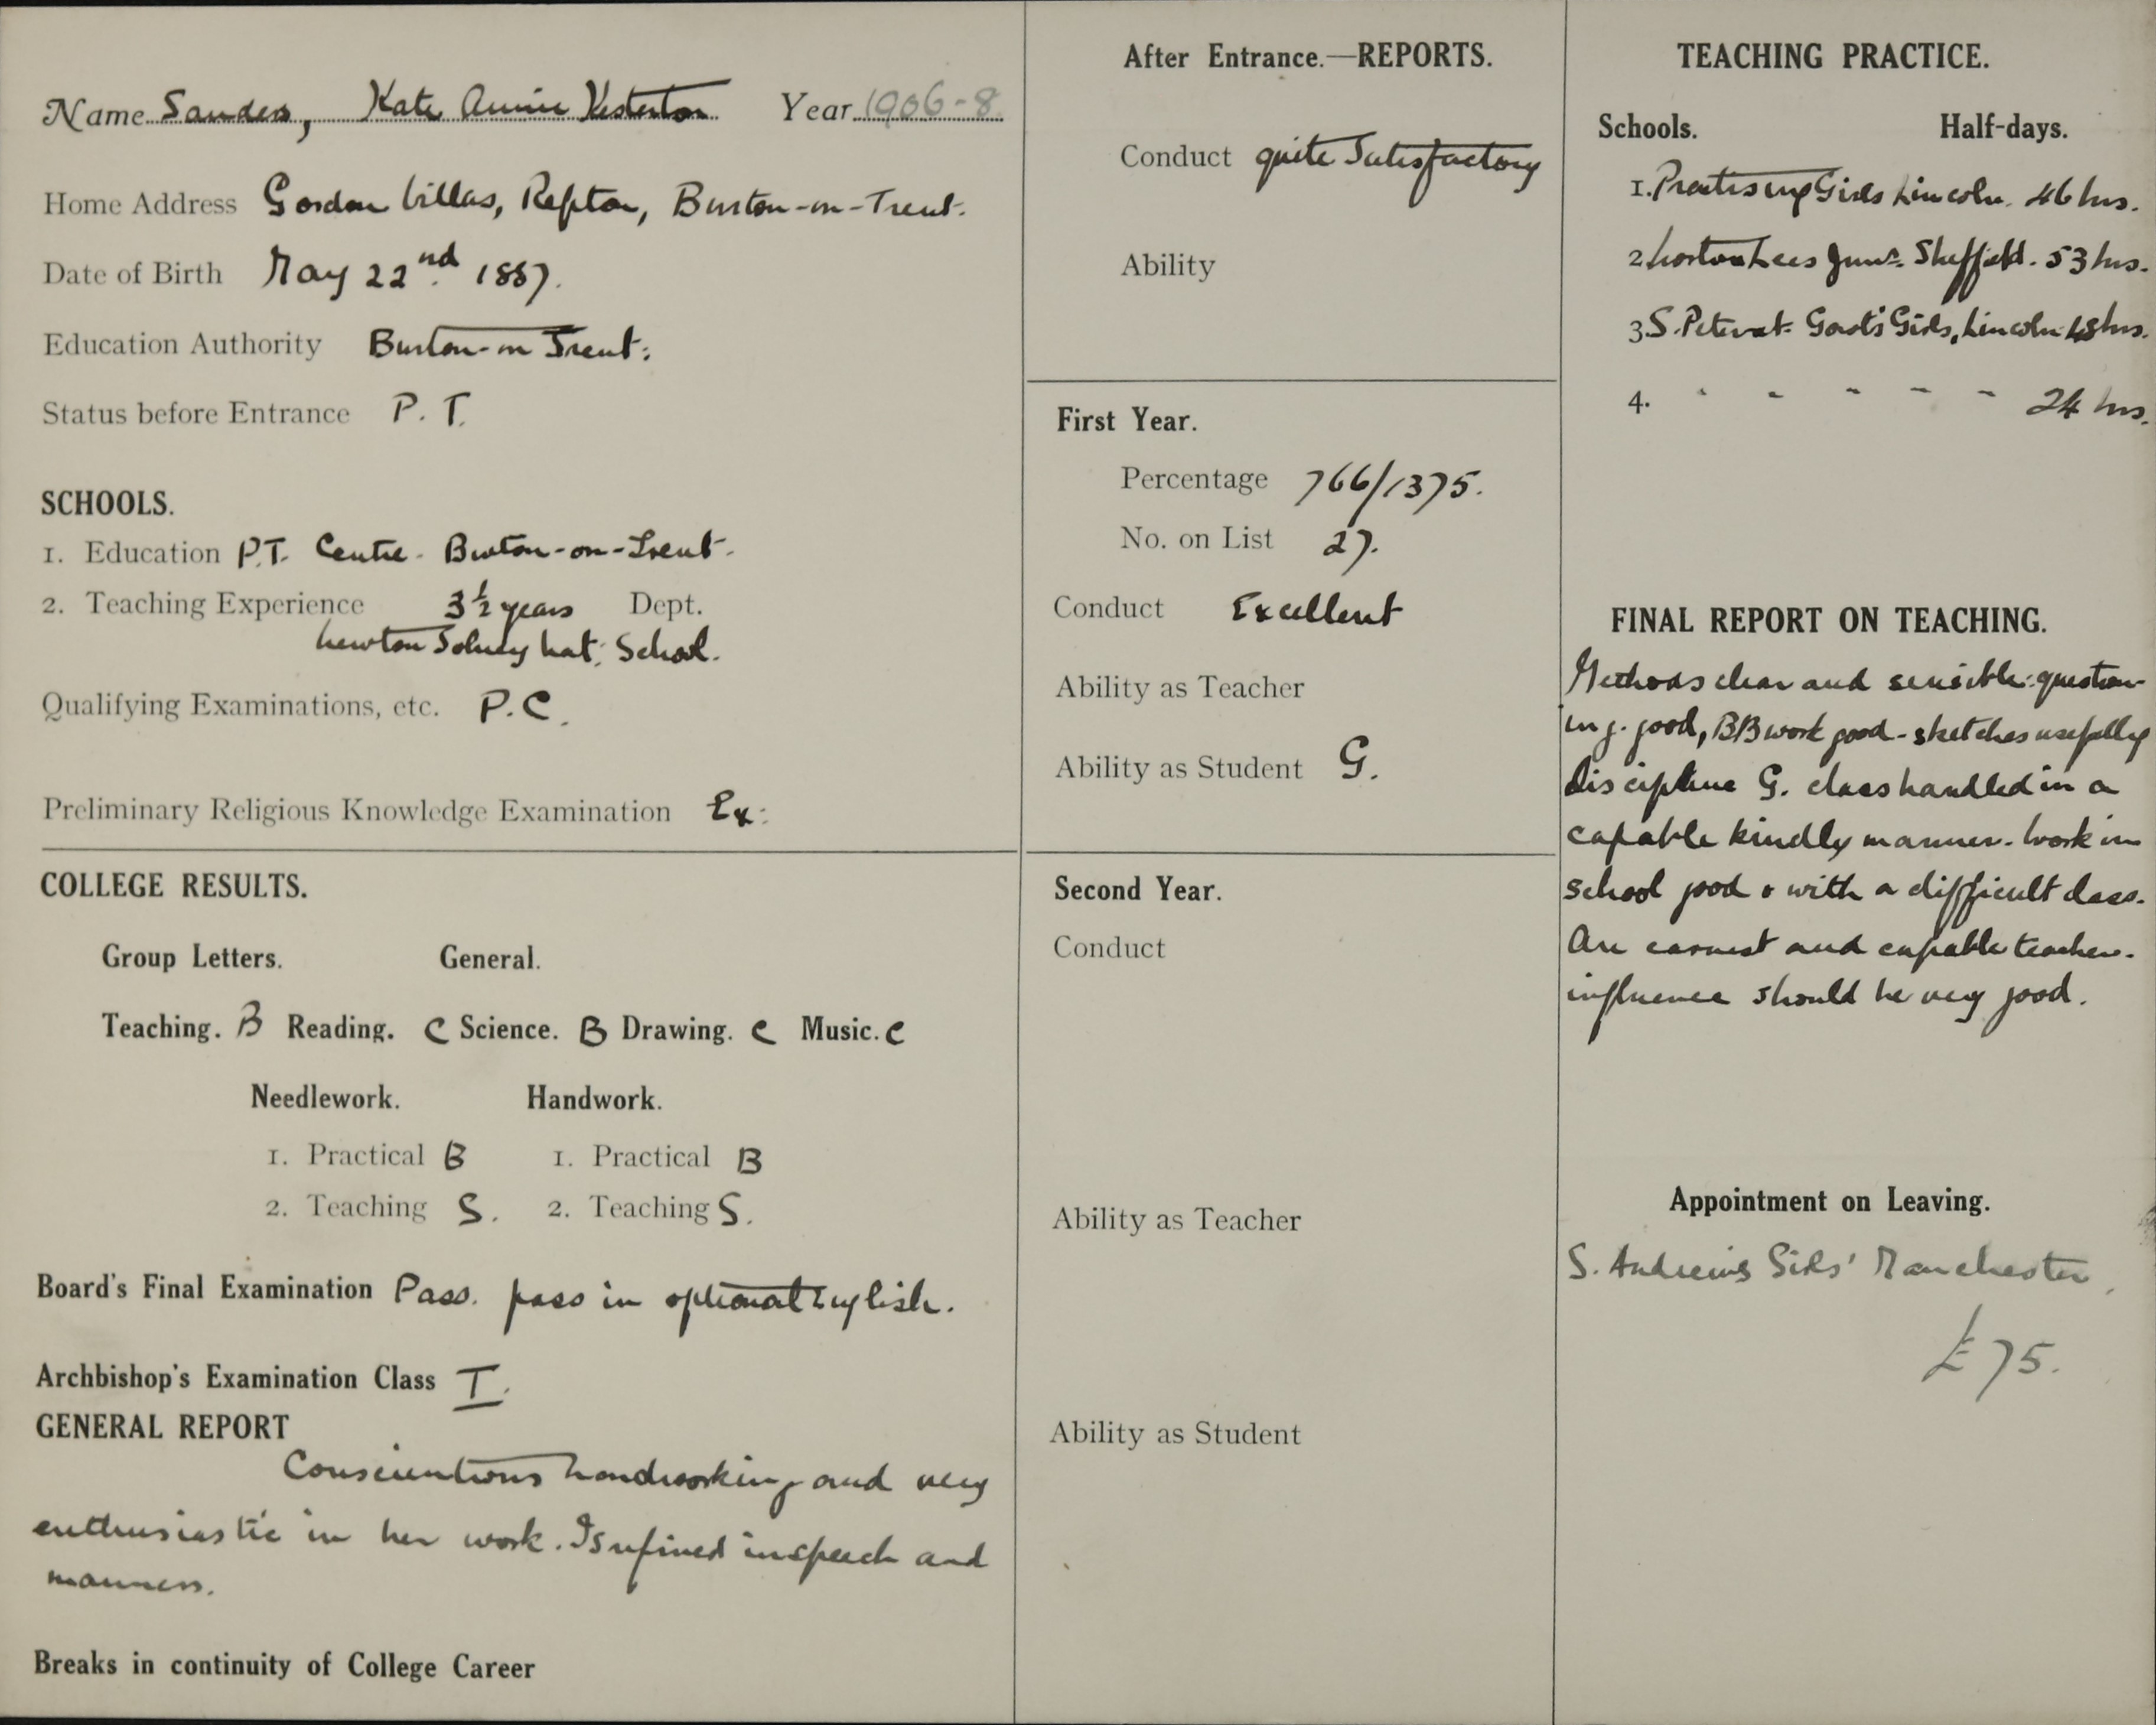 Name Sanders, Kate Annie Kesterton Year 1906-8
Home Address Gordon Villas, Repton, Burton-on-Trent.
Date of Birth May 22nd 1887.
Education Authority Burton-on Trent.
Status before Entrance P. T.
SCHOOLS.
1. Education P.T. Centre. Burton-on-Trent.
2. Teaching Experience 3½ years Dept.
Newton Solney Nat: School.
Qualifying Examinations, etc. P.C.
Preliminary Religious Knowledge Examination Ex:
COLLEGE RESULTS.
Group Letters. General.
Teaching. B Reading. C Science. B Drawing. C Music. C
Needlework. Handwork.
1. Practical B 1. Practical B
2. Teaching S. 2. Teaching S.
Board's Final Examination Pass. pass in optional English.
Archbishop's Examination Class I.
GENERAL REPORT
Conscientious hardworking and very
enthusiastic in her work. Is refined in speech and
manners.
Breaks in continuity of College Career
After Entrance.—REPORTS.
Conduct quite Satisfactory
Ability
First Year.
Percentage 766/1375.
No. on List 27.
Conduct Excellent
Ability as Teacher
Ability as Student G.
Second Year.
Conduct
Ability as Teacher
Ability as Student
TEACHING PRACTICE.
Schools. Half-days.
1. Practising Girls Lincoln. 46 hrs.
2 Norton Lees Junr. Sheffield. 53 hrs.
3 S. Peter at Gowt's Girls, Lincoln 48 hrs.
4. " " " " " 24 hrs.
FINAL REPORT ON TEACHING.
Methods clear and sensible: question-
ing. good, BB work good - sketches usefully
discipline G. class handled in a
capable kindly manner. Work in
school good & with a difficult class.
An earnest and capable teacher.
influence should be very good.
Appointment on Leaving.
S. Andrew's Girls' Manchester,
£75.